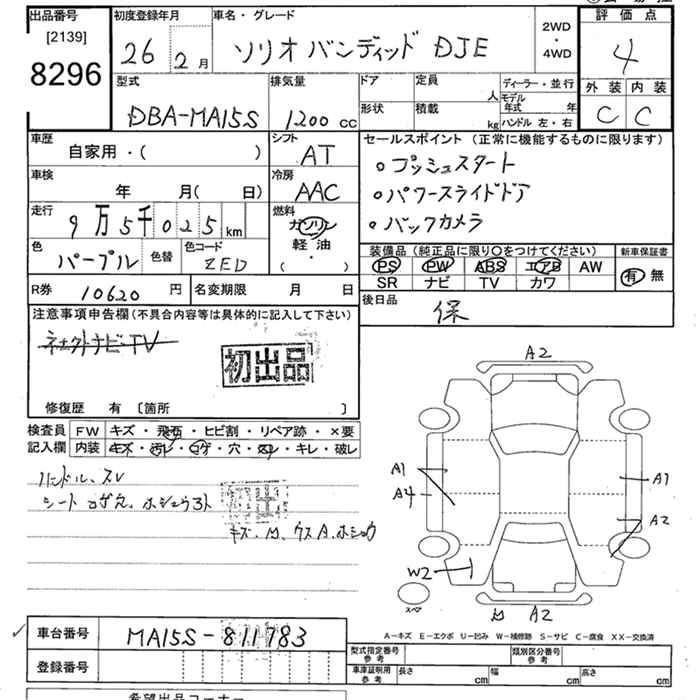 出品番号 初度登録年月 車名・グレード 2WD・4WD 評価点
[2139]
8296 26年 2月 ソリオ バンディッド DJE 4
外装 内装
C C
型式 排気量 ドア 定員 人 ディーラー・並行
DBA-MA15S 1200 CC 形状 積載 kg モデル年式 年
ハンドル 左・右
車歴 シフト セールスポイント（正常に機能するものに限ります）
自家用・( ) AT
車検 冷房
年 月( 日) AAC
走行 燃料
9万5千025km ガソリン
軽油
( ・ )
。プッシュスタート
。パワースライドドア
。バックカメラ
色 色替 色コード
パープル ZED
装備品（純正品に限り○をつけてください） 新車保証書
PS PW ABS エアB AW 有 無
SR ナビ TV カワ
R券 10620 円 名変期限 月 日
後日品 保
注意事項申告欄(不具合内容等は具体的に記入して下さい)
ネェクトナビ・TV
初出品
修復歴 有 〔箇所 〕
検査員記入欄
FW キズ・飛石・ヒビ割・リペア跡・×要
内装 キズ・汚レ・コゲ・穴・スレ・キレ・破レ
ハンドル、スレ
シート コゲ穴、ホシュウあと
キズ、凹、ウスA、ホシュウ
A2
A1
A4
A1
A2
W2
スペア
凹 A2
車台番号 MA15S-811783
登録番号
A－キズ E－エクボ U－凹み W－補修跡 S－サビ C－腐食 XX－交換済
型式指定番号 参考 類別区分番号 参考
車庫証明用 参考 長さ cm 幅 cm 高さ cm
希望出品コーナー